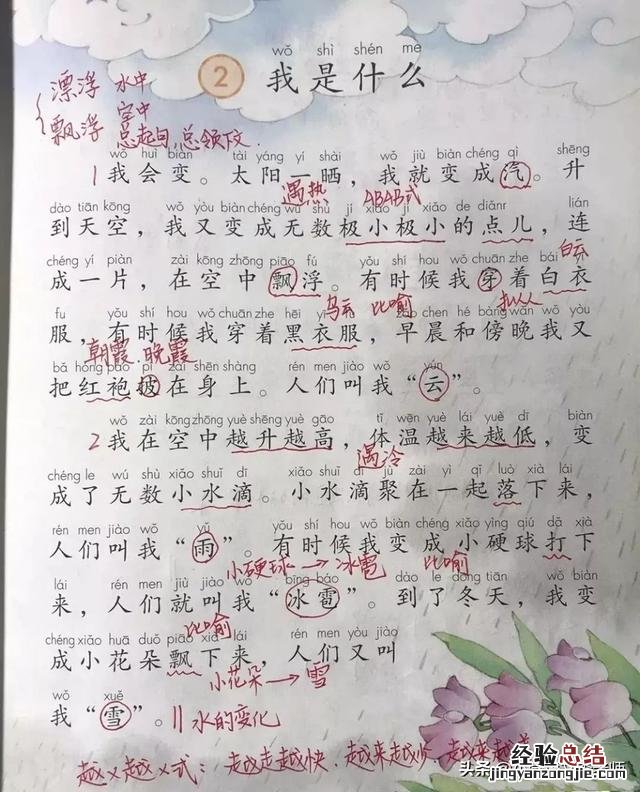 wǒ shì shén me
2 我是什么
漂浮 水中
飘浮 空中
总起句,总领下文.
wǒ huì biàn tài yáng yí shài wǒ jiù biàn chéng qì shēng
1我会变。太阳一晒，我就变成汽。升
遇热 ABAB式
dào tiān kōng wǒ yòu biàn chéng wú shù jí xiǎo jí xiǎo de diǎnr lián
到天空，我又变成无数极小极小的点儿，连
chéng yí piàn zài kōng zhōng piāo fú yǒu shí hou wǒ chuān zhe bái yī
成一片，在空中飘浮。有时候我穿着白衣
白云
fu yǒu shí hou wǒ chuān zhe hēi yī
服，有时候我穿着黑衣服，早晨和傍晚我又
乌云 比喻 拟人
朝霞.晚霞
bǎ hóng páo pī zài shēn shàng rén men jiào wǒ yún
把红袍披在身上。人们叫我“云”。
wǒ zài kōng zhōng yuè shēng yuè gāo tǐ wēn yuè lái yuè dī biàn
2我在空中越升越高，体温越来越低，变
遇冷
chéng le wú shù xiǎo shuǐ dī xiǎo shuǐ dī jù zài yì qǐ luò xià lái
成了无数小水滴。小水滴聚在一起落下来，
rén men jiào wǒ yǔ yǒu shí hou wǒ biàn chéng xiǎo yìng qiú dǎ xià
人们叫我“雨”。有时候我变成小硬球打下
小硬球→冰雹 比喻
lái rén men jiù jiào wǒ bīng báo dào le dōng tiān wǒ biàn
来，人们就叫我“冰雹”。到了冬天，我变
比喻
chéng xiǎo huā duǒ piāo xià lái rén men yòu jiào
成小花朵飘下来，人们又叫
小花朵→雪
wǒ xuě
我“雪”。∥水的变化
越×越×式：越走越快.越来越
头条
经验总结
jingyanzongjie.com